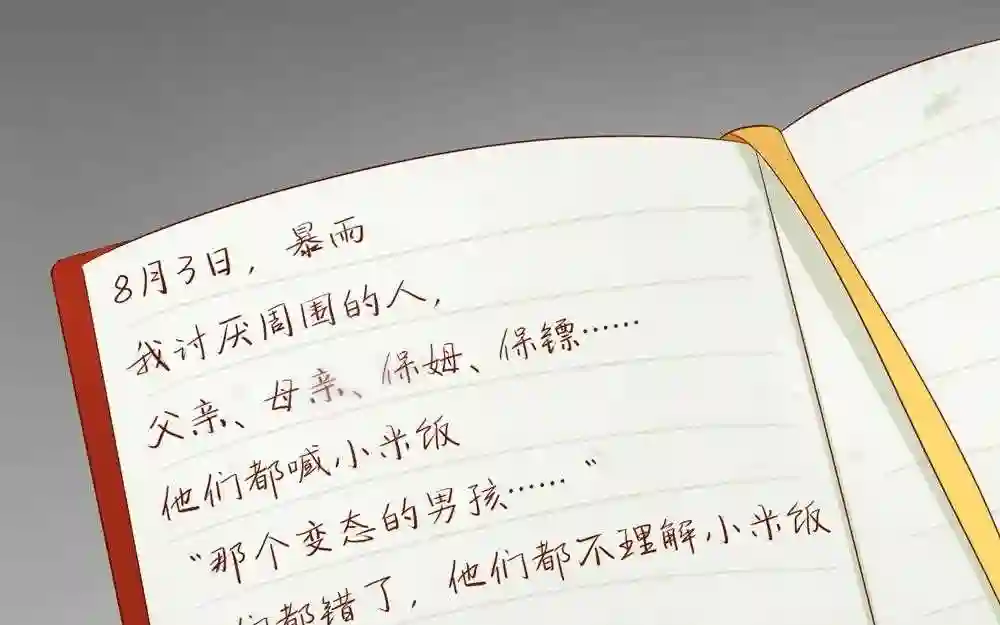 8月3日，暴雨
我讨厌周围的人，
父亲、母亲、保姆、保镖……
他们都喊小米饭
“那个变态的男孩……”
们都错了，他们都不理解小米饭